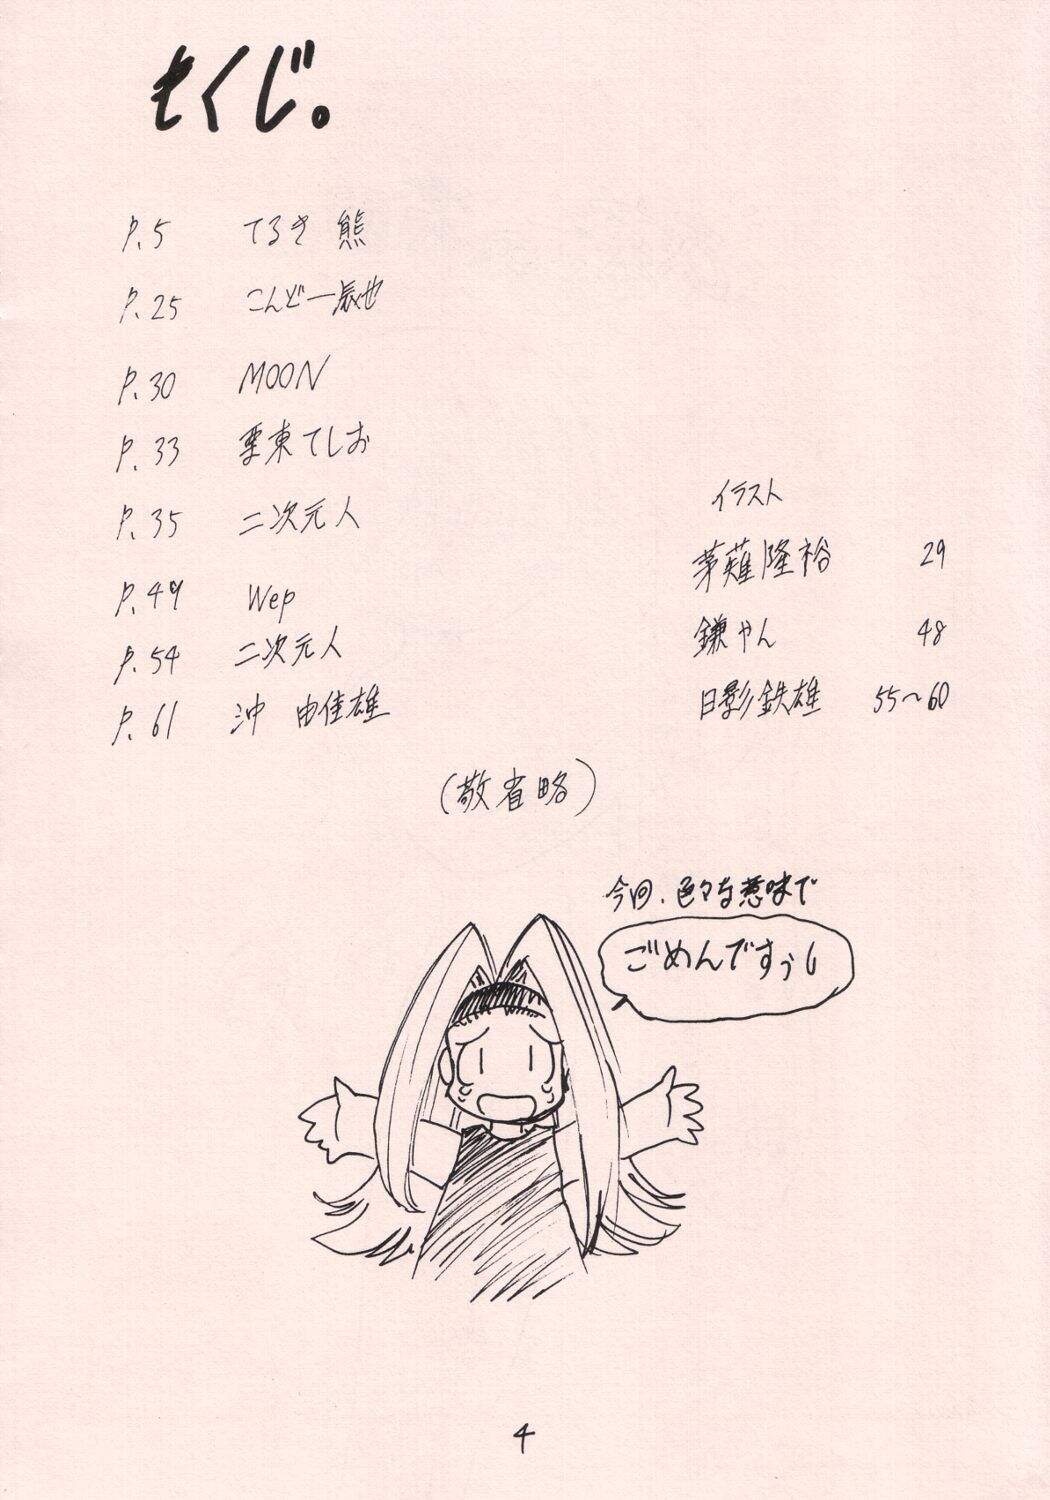 もくじ。
P.5 てるき 熊
P.25 こんどー辰也
P.30 MOON
P.33 栗東てしお
P.35 二次元人
P.49 Wep
P.54 二次元人
P.61 沖 由佳雄
イラスト
茅薙隆裕 29
鎌やん 48
日影鉄雄 55〜60
(敬省略)
今回、色々な意味で
ごめんですぅ
4